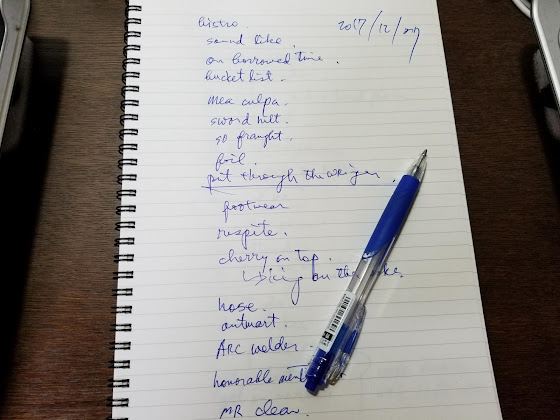 bistro.
2017/12/27
sound like.
on borrowed time.
bucket list.
mea culpa.
sword hilt.
so fraught.
foil.
put through the wringer.
footwear
respite.
cherry on top.
icing on the cake
hose.
outmart.
ARC welder.
honorable ment
MR clean.